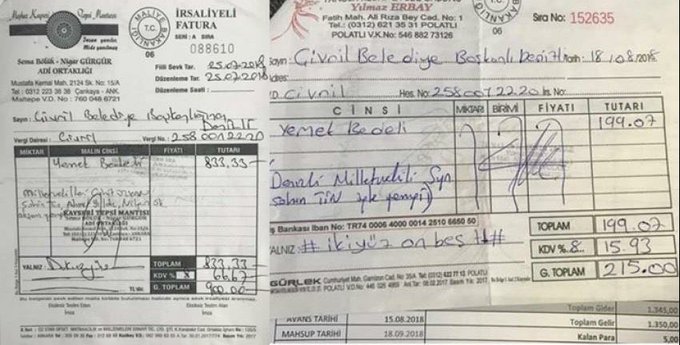 Meşhur Kayseri Tepsi Mantısı
T.C.
MALİYE BAKANLIĞI
06
İRSALİYELİ
FATURA
SERİ : A SIRA
088610
Sema Bölük - Nigar GÜRGÜR
ADİ ORTAKLIĞI
Mustafa Kemal Mah. 2124 Sk. No: 15/A
Tel: 0312 223 38 38 Çankaya - ANK.
Maltepe V.D. No: 760 046 6721
Fiili Sevk Tar. : 25.07.2018
Düzenleme Tar. : 25.07.2018
Düzenleme Saati :
Sayın: Çivril Belediye Başkanlığına
Denizli
Vergi Dairesi : Çivril
Vergi No. : 2580072220
MİKTAR MALIN CİNSİ FİYATI TUTARI
Yemek Bedeli 833,33
KAYSERİ TEPSİ MANTISI
YALNIZ
TOPLAM 833,33
KDV % 66,67
G. TOPLAM 900.00
Teslim Eden Teslim Alan
İmza İmza
Yılmaz ERBAY
Fatih Mah. Ali Rıza Bey Cad. No: 1
Tel.: (0312) 621 35 31 POLATLI
POLATLI V.K. No: 546 882 73126
T.C.
06
Sıra No: 152635
Sayın: Çivril Belediye Başkanlı Denizli
Tarih: 18.08.2018
Adres:
V.D. Çivril Hes. No: 2580072220
CİNSİ MİKTARI BİRİMİ FİYATI TUTARI
Yemek Bedeli 199.07
Denizli Milletvekili Syn.
Şahin TİN
İş Bankası Iban No: TR74 0006 4000 0014 2510 6650 50
YALNIZ: # ikiyüz on beş #
TOPLAM 199.07
KDV %8. 15.93
G. TOPLAM 215.00
GÜRLEK Cumhuriyet Mah. Garnizon Cad. No: 35/A Tel: (0312) 623 77 13 POLATLI
AVANS TARİHİ 15.08.2018
MAHSUP TARİHİ 18.09.2018
Toplam Gider 1.345,00
Toplam Gelir 1.350,00
Kalan Para 5,00